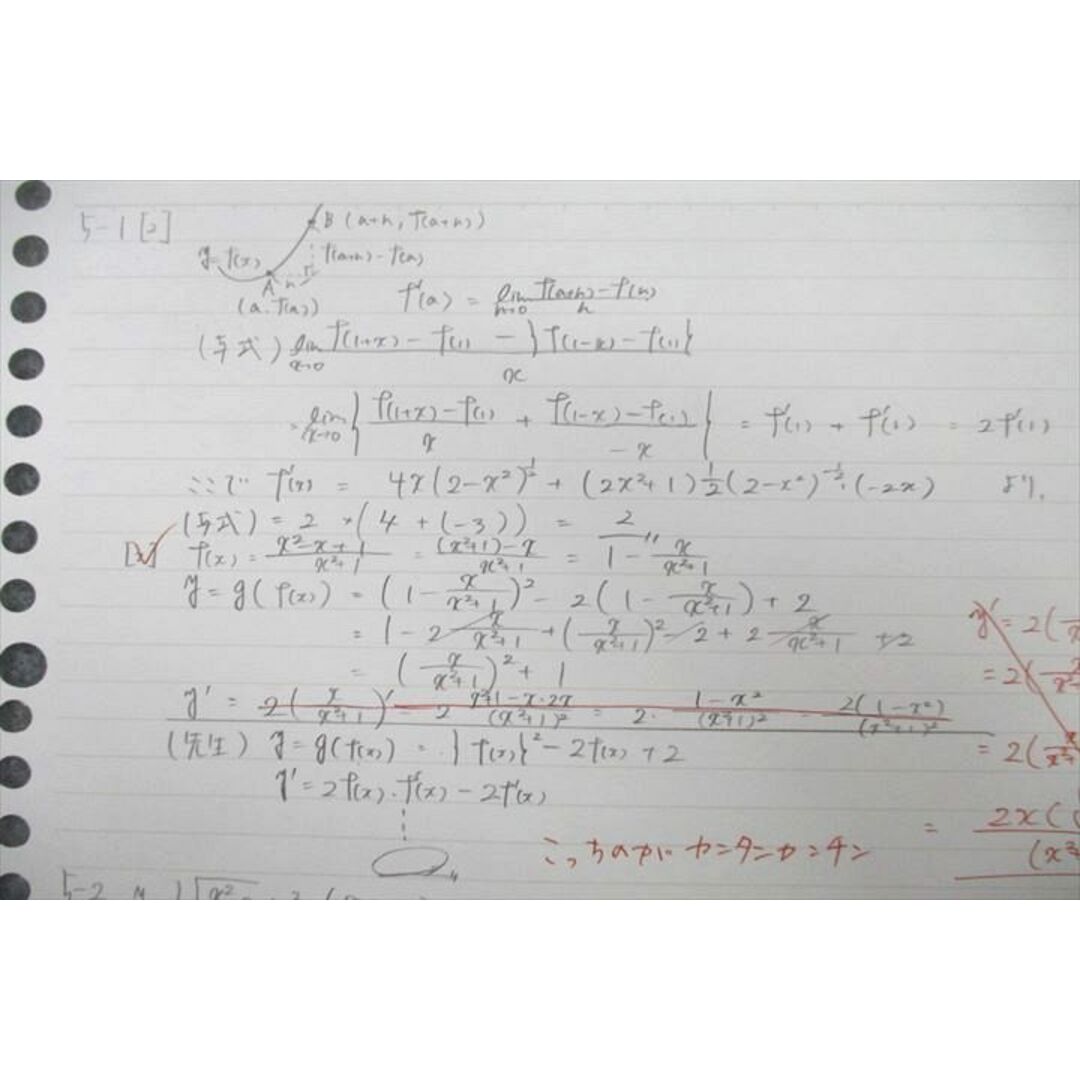 5-1 [2]
B (a+h, f(a+h))
y=f(x)
f(a+h)-f(a)
A h
(a, f(a))
f'(a) = lim h→0 f(a+h)-f(a) / h
(与式) lim x→0 f(1+x) - f(1) - {f(1-x) - f(1)} / x
= lim x→0 { f(1+x)-f(1) / x + f(1-x)-f(1) / -x } = f'(1) + f'(1) = 2f'(1)
ここで f'(x) = 4x(2-x²)^½ + (2x²+1)½(2-x²)^-½・(-2x) より,
(与式) = 2 × (4 + (-3)) = 2
f(x) = x²-x+1 / x²+1 = (x²+1)-x / x²+1 = 1 - x / x²+1
y = g(f(x)) = (1 - x / x²+1)² - 2(1 - x / x²+1) + 2
= 1 - 2 x / x²+1 + (x / x²+1)² - 2 + 2 x / x²+1 + 2
= (x / x²+1)² + 1
y' = 2(x / x²+1)' = 2 x²+1-x・2x / (x²+1)² = 2・1-x² / (x²+1)² = 2(1-x²) / (x²+1)²
(先生) y = g(f(x)) = {f(x)}² - 2f(x) + 2
y' = 2f(x)・f'(x) - 2f'(x)
こっちのがカンタンカンチン
y' = 2(
= 2(
= 2(
= 2x(
(x²
5-2